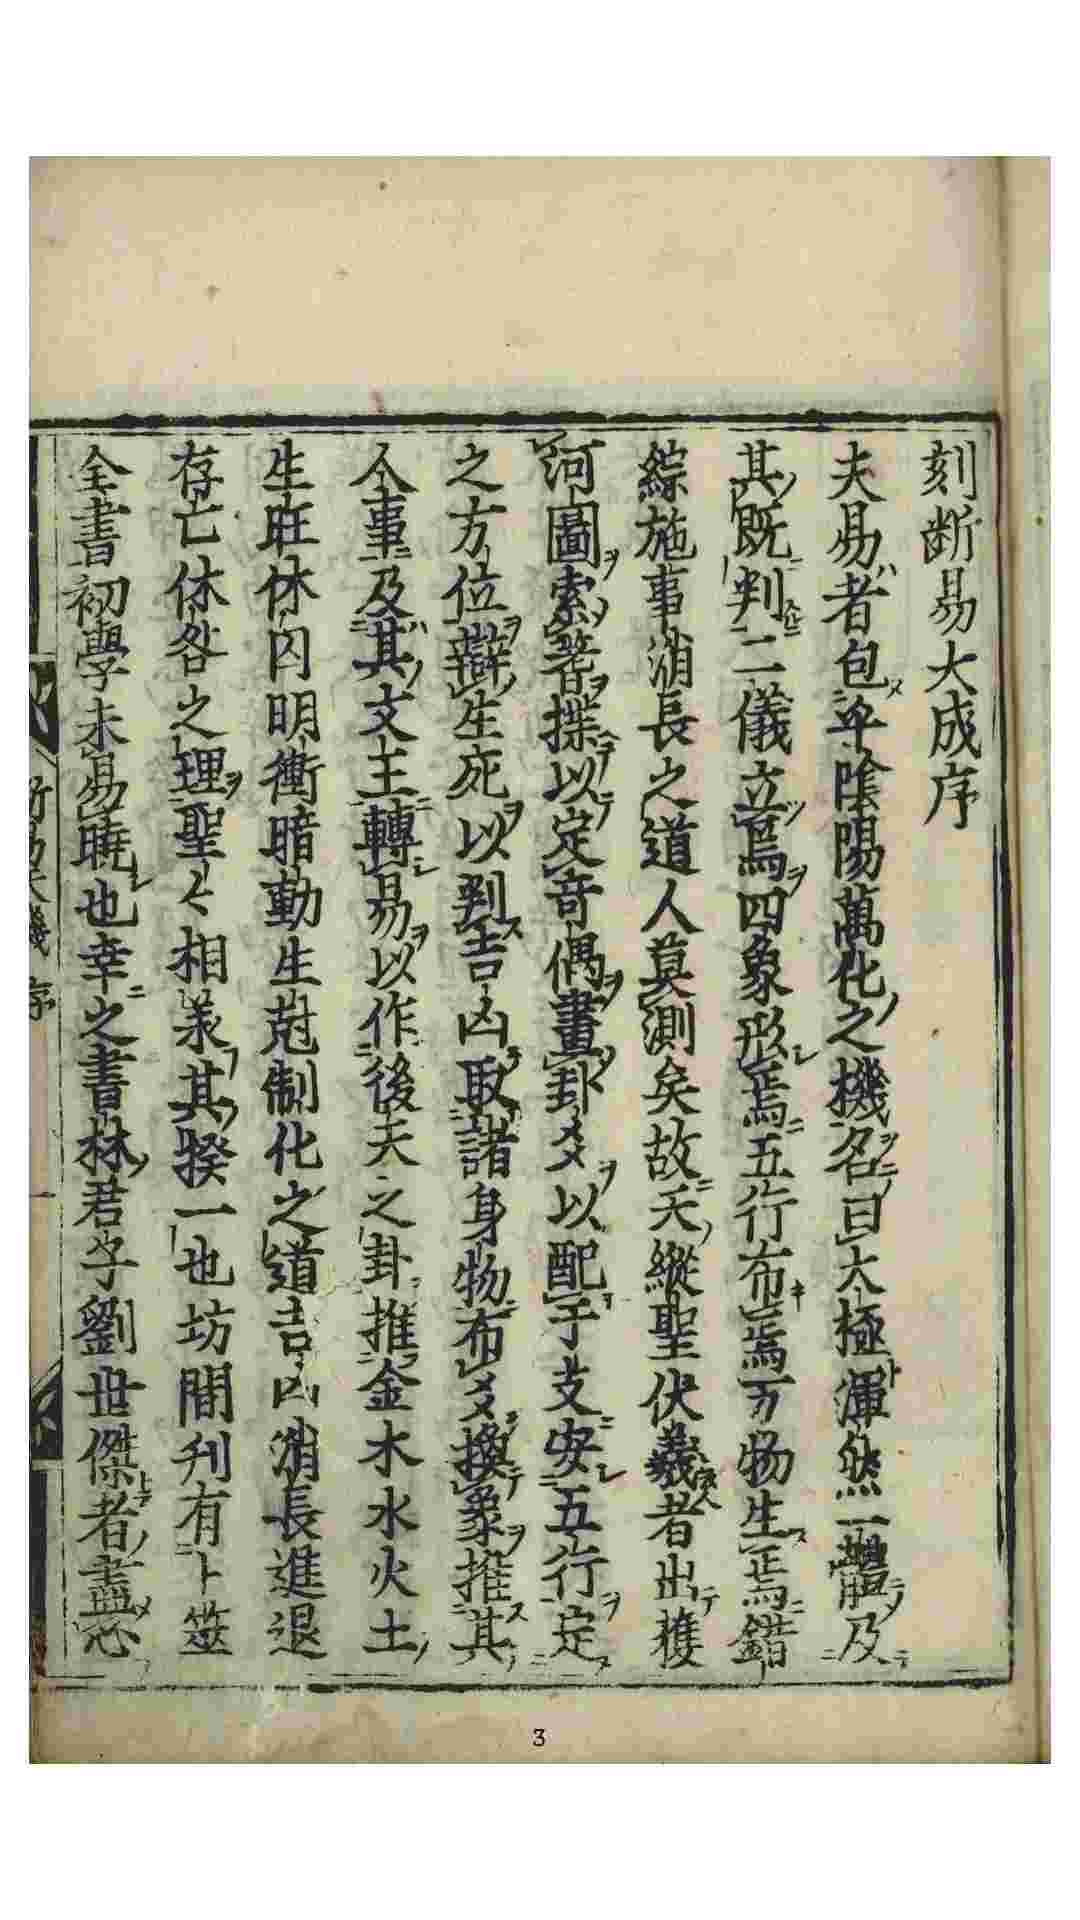 刻断易大成序
夫易者包牟陰陽萬化之機名曰太極渾然一體及
其既判二儀立焉四象形焉五行布焉万物生焉錯
綜施事消長之道人莫測矣故天縱聖伏羲者出獲
河圖索蓍揲以定竒偶畫卦爻以配于支安五行定
之方位辯生死以判吉凶取諸身物布爻換象推其
人事及其文王轉易以作後天之卦推金木水火土
生旺休囚明衝暗動生尅制化之道吉凶消長進退
存亡休咎之理聖〻相羙其揆一也坊間刋有卜筮
全書初學未易曉也幸之書林君字劉世傑者盡心
断易天機 序 一
3